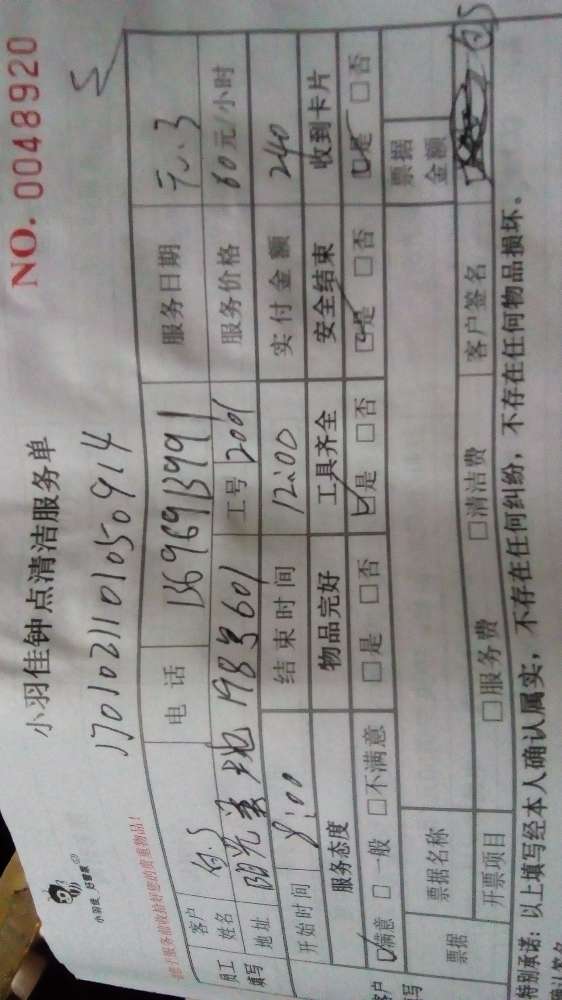 NO. 0048920
小羽佳钟点清洁服务单
17010211010509 14
小羽佳 好管家
请于服务前收拾好您的贵重物品!
员工填写
客户姓名 白S 电话 13696913991 服务日期 元.3
地址 阳光美地198号601 工号 2001 服务价格 60元/小时
开始时间 8:00 结束时间 12:00 实付金额 240
服务态度 物品完好 工具齐全 安全结束 收到卡片
☑满意 □一般 □不满意 □是 □否 ☑是 □否 ☑是 □否 ☑是 □否
客户填写
票据 票据名称 票据金额
开票项目 □服务费 □清洁费 客户签名 白S
特别承诺:以上填写经本人确认属实,不存在任何纠纷,不存在任何物品损坏。
确认签名